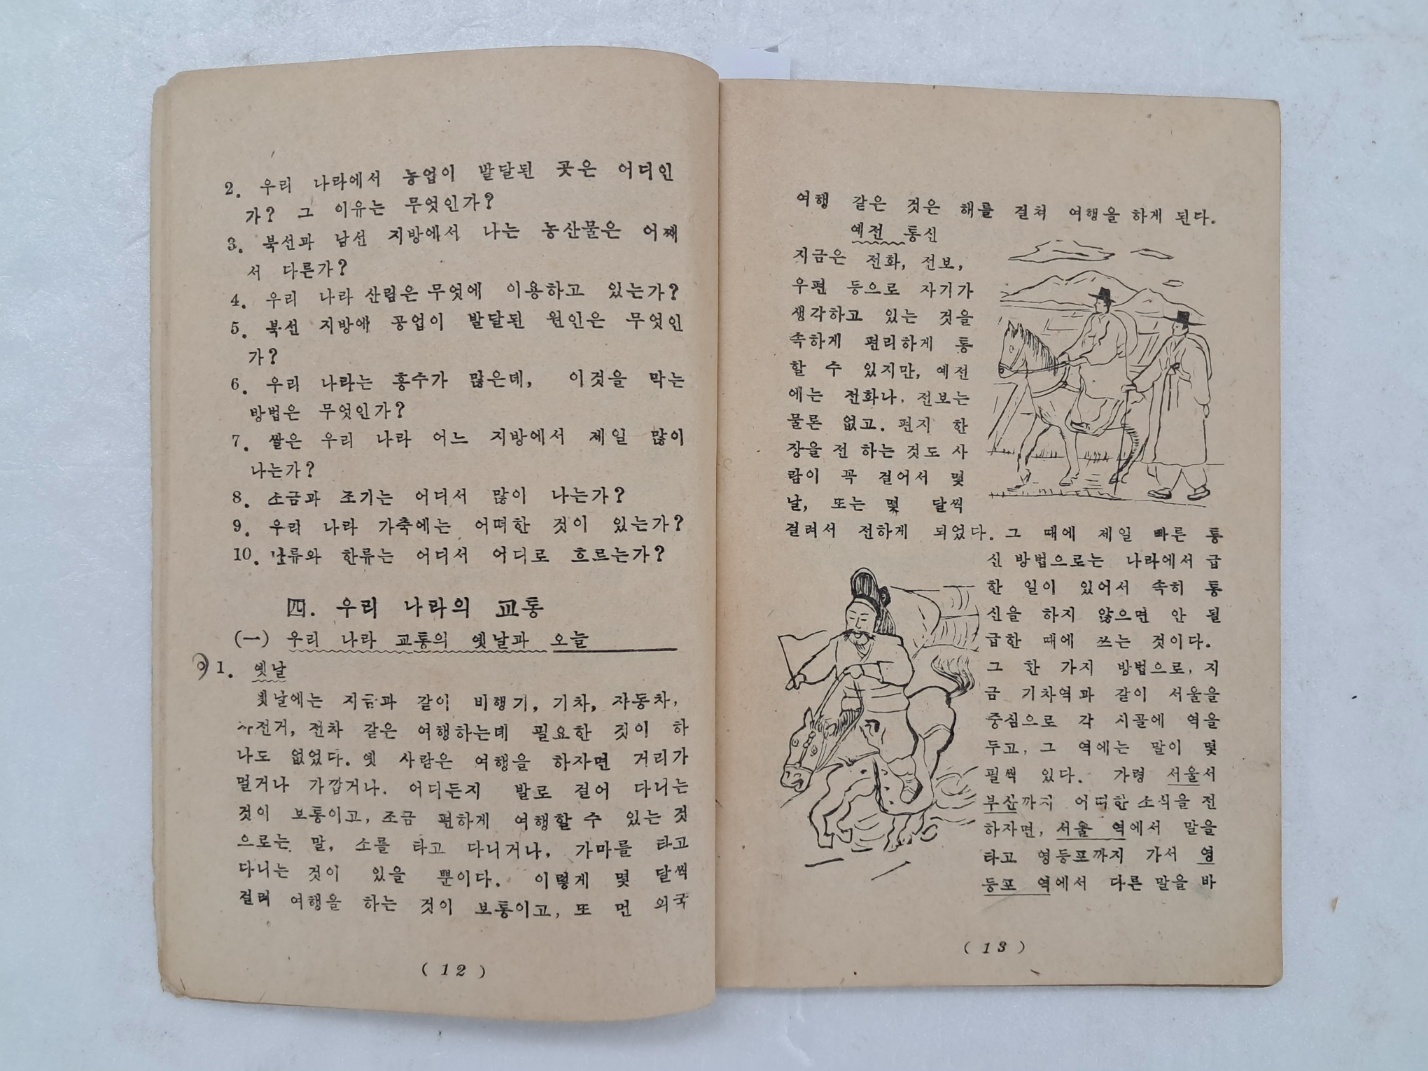 2. 우리 나라에서 농업이 발달된 곳은 어디인
가? 그 이유는 무엇인가?
3. 북선과 남선 지방에서 나는 농산물은 어째
서 다른가?
4. 우리 나라 산림은 무엇에 이용하고 있는가?
5. 북선 지방에 공업이 발달된 원인은 무엇인
가?
6. 우리 나라는 홍수가 많은데, 이것을 막는
방법은 무엇인가?
7. 쌀은 우리 나라 어느 지방에서 제일 많이
나는가?
8. 소금과 조기는 어디서 많이 나는가?
9. 우리 나라 가축에는 어떠한 것이 있는가?
10. 난류와 한류는 어디서 어디로 흐르는가?
四. 우리 나라의 교통
(一) 우리 나라 교통의 옛날과 오늘
1. 옛날
옛날에는 지금과 같이 비행기, 기차, 자동차,
자전거, 전차 같은 여행하는데 필요한 것이 하
나도 없었다. 옛 사람은 여행을 하자면 거리가
멀거나 가깝거나. 어디든지 발로 걸어 다니는
것이 보통이고, 조금 편하게 여행할 수 있는 것
으로는 말, 소를 타고 다니거나, 가마를 타고
다니는 것이 있을 뿐이다. 이렇게 몇 달씩
걸려 여행을 하는 것이 보통이고, 또 먼 외국
(12)
여행 같은 것은 해를 걸쳐 여행을 하게 된다.
예전 통신
지금은 전화, 전보,
우편 등으로 자기가
생각하고 있는 것을
속하게 편리하게 통
할 수 있지만, 예전
에는 전화나. 전보는
물론 없고. 편지 한
장을 전 하는 것도 사
람이 꼭 걸어서 몇
날, 또는 몇 달씩
걸려서 전하게 되었다. 그 때에 제일 빠른 통
신 방법으로는 나라에서 급
한 일이 있어서 속히 통
신을 하지 않으면 안 될
급한 때에 쓰는 것이다.
그 한 가지 방법으로, 지
금 기차역과 같이 서울을
중심으로 각 시골에 역을
두고, 그 역에는 말이 몇
필씩 있다. 가령 서울서
부산까지 어떠한 소식을 전
하자면, 서울 역에서 말을
타고 영등포까지 가서 영
등포 역에서 다른 말을 바
(13)